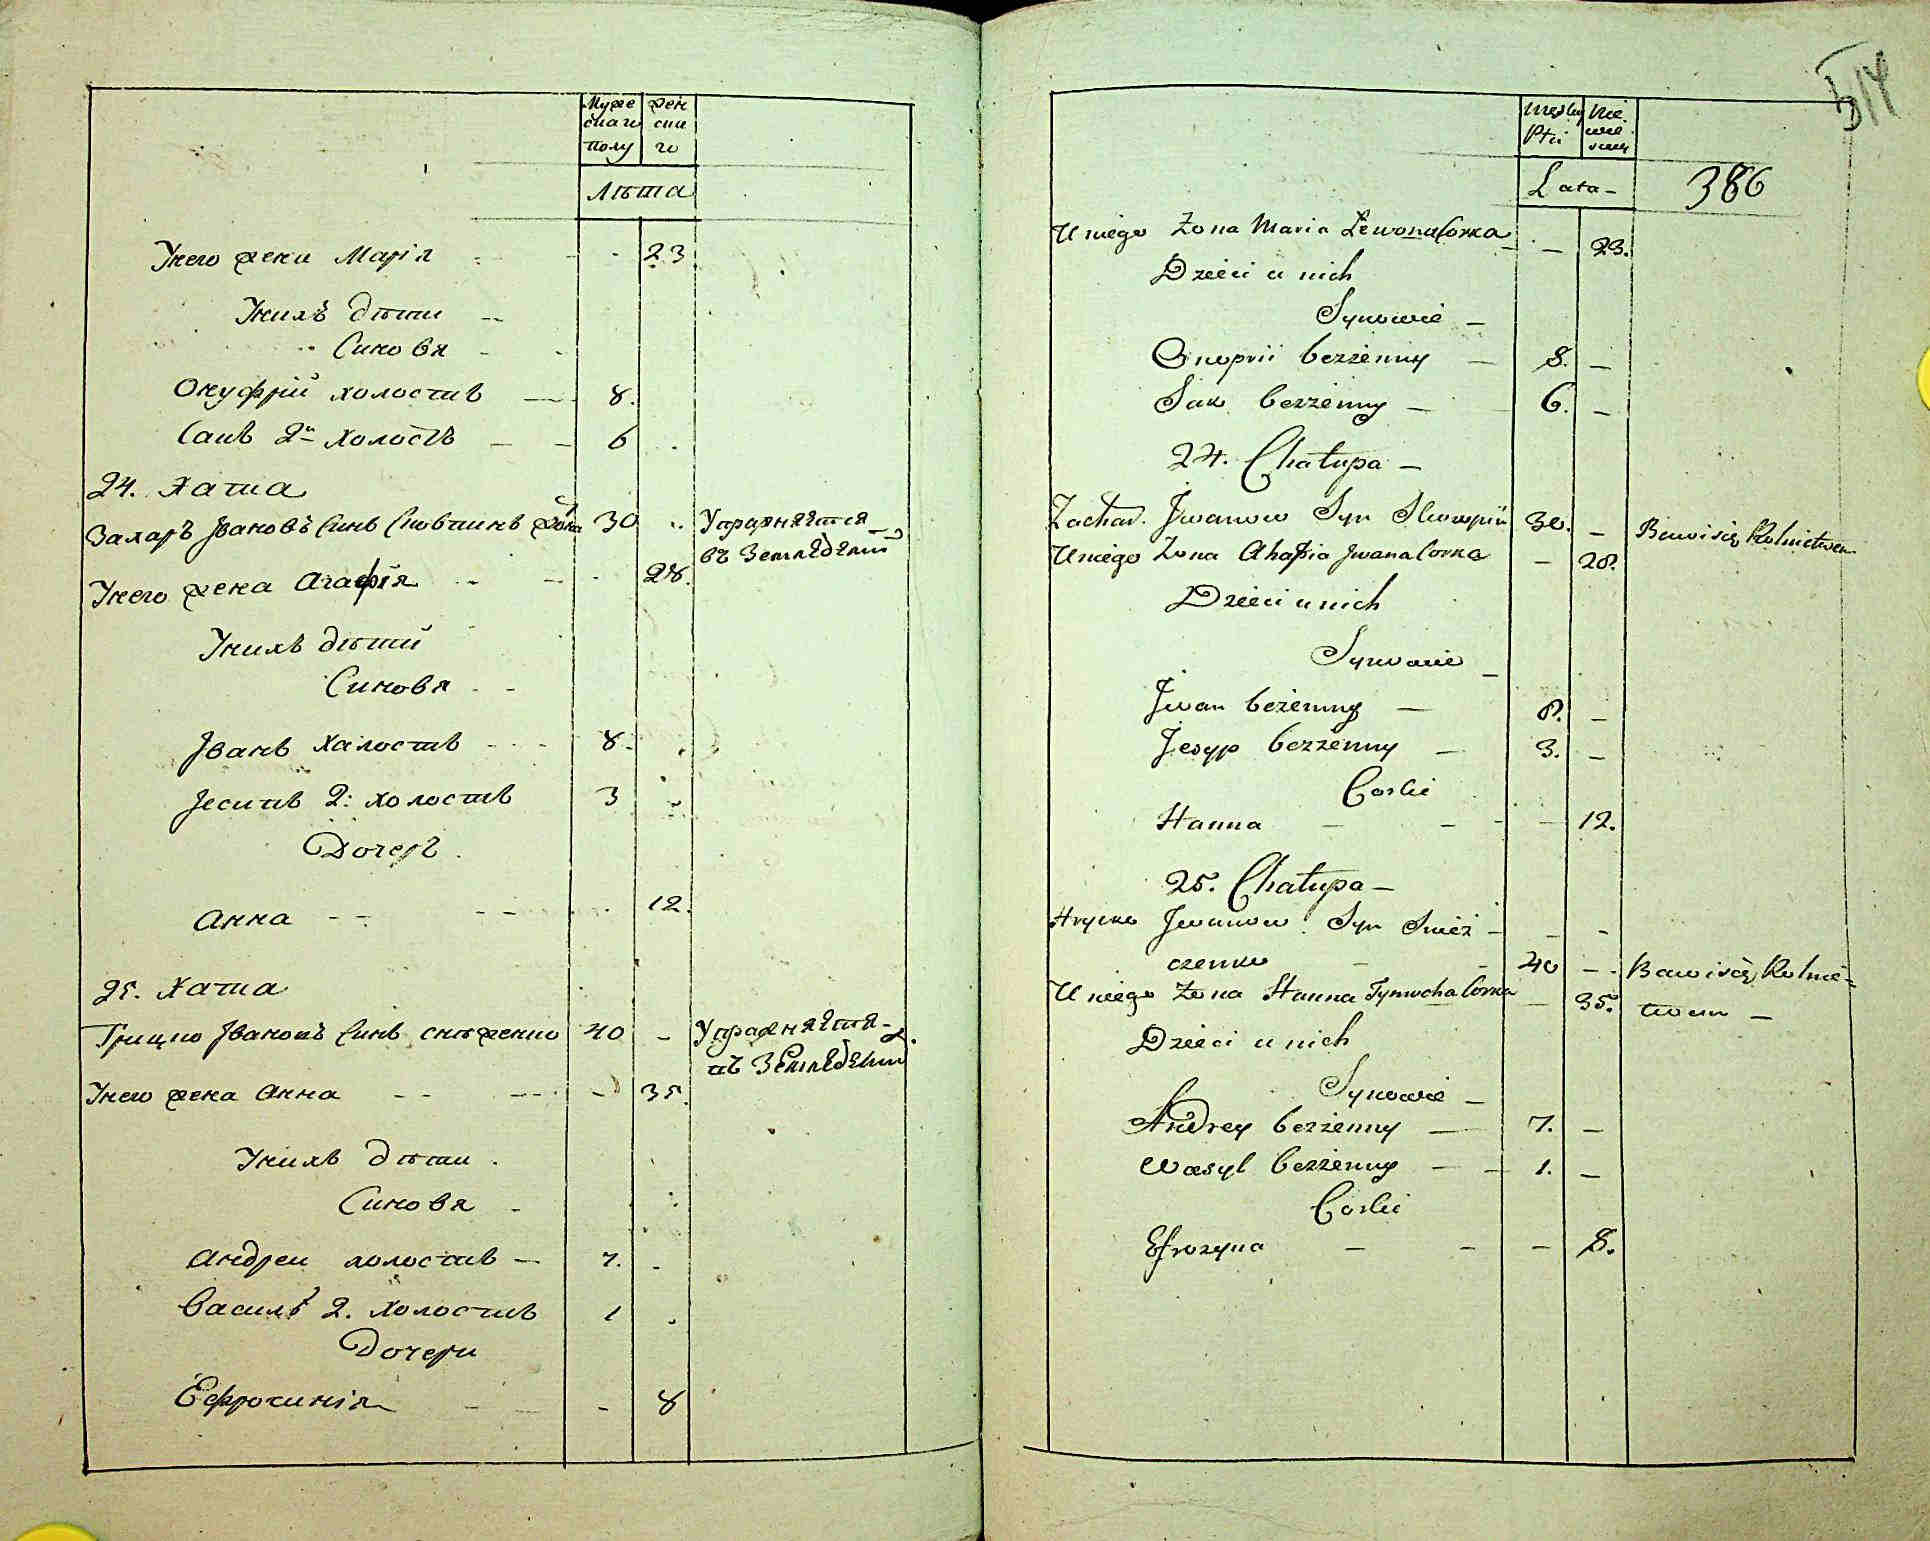 Муже
скаго
полу
Жен
ска
го
Лѣта
Унего жена Марія 23.
Унихъ дѣти
Синовя
Онуфрій холостъ 8.
Савъ 2й холостъ 6
24. Хата
Захаръ Івановъ Синъ 30 Упражняется
въ Земледѣліи
Унего жена Агафія 28.
Унихъ дѣтий
Синовя
Іванъ халостъ 8.
Іесипъ 2: холостъ 3
Дочер
Анна 12.
25. Хата
Грицко Івановъ Синъ снѣженко 40 – Упражняется
въ Земледѣлии
Унего жена Анна – 35.
Унихъ дѣти.
Синовя
Андреи холостъ – 7.
Василъ 2. холостъ 1
Дочери
Ефросинія – 8
514
Męzkey
Płci
Nie
wie
sciey
Lata – 386
U niego Zona Maria Lewona Corka – 23.
Dzieci u nich
Synowie –
Onoprii bezżenny – 8. –
Saw bezżenny – 6. –
24. Chałupa –
Zachar. Jwanow Syn 30. – Bawi się Rolnictwem
U niego Zona Ahafia Jwana Corka – 28.
Dzieci u nich
Synowie –
Jwan beżenny – 8. –
Jesyp bezżenny – 3. –
Corki
Hanna – – – 12.
25. Chałupa –
Hrycko Jwanow Syn Snież – – –
czenko – – 40 – Bawi się Rolnic–
U niego Zona Hanna Tymocha Corka – 35. twem –
Dzieci u nich
Synowie –
Andrey bezżenny – 7. –
Wasyl bezżenny – – 1. –
Corki
Efrozyna – – – 8.